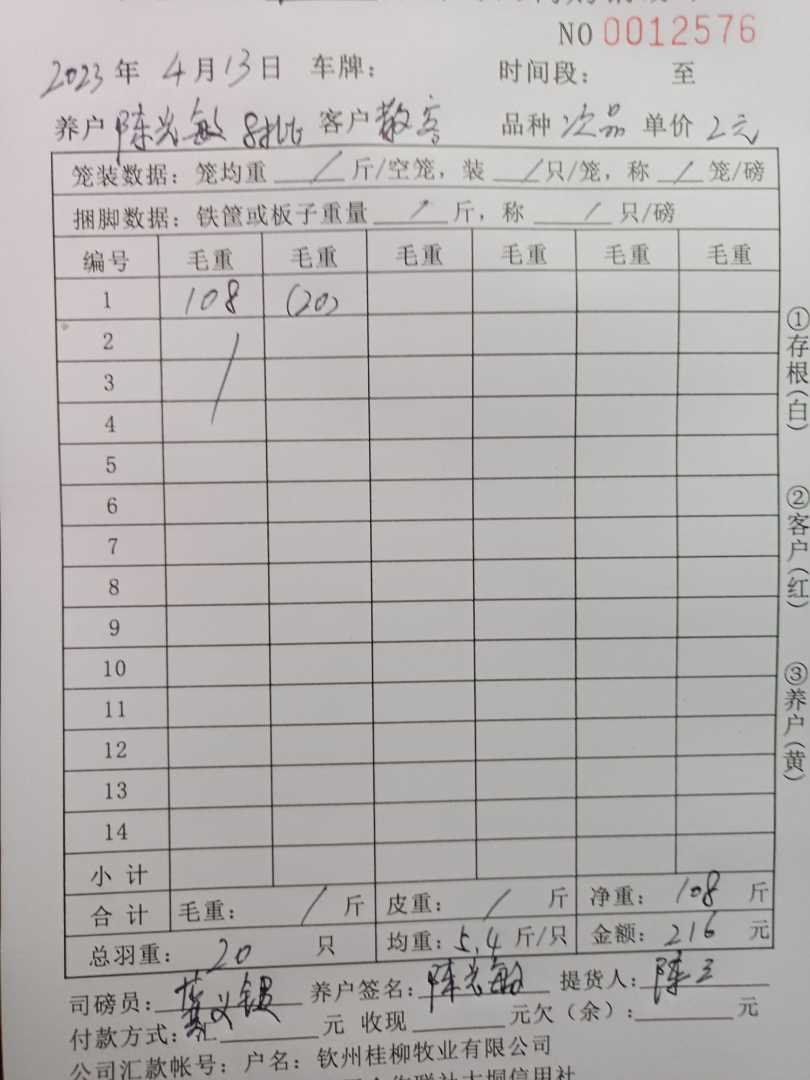 NO 0012576
2023年 4月13日 车牌: 时间段: 至
养户 陈光敏 8批 客户 散客 品种 次品 单价 2元
笼装数据: 笼均重 / 斤/空笼, 装 / 只/笼, 称 / 笼/磅
捆脚数据: 铁筐或板子重量 / 斤, 称 / 只/磅
编号 毛重 毛重 毛重 毛重 毛重 毛重
1 108 (20)
2 /
3
4
5
6
7
8
9
10
11
12
13
14
小计
合计 毛重: / 斤 皮重: / 斤 净重: 108 斤
总羽重: 20 只 均重: 5.4 斤/只 金额: 216 元
司磅员: 养户签名: 陈光敏 提货人: 陈
付款方式: 汇 元 收现 元欠(余): 元
公司汇款帐号: 户名: 钦州桂柳牧业有限公司
①存根(白)
②客户(红)
③养户(黄)